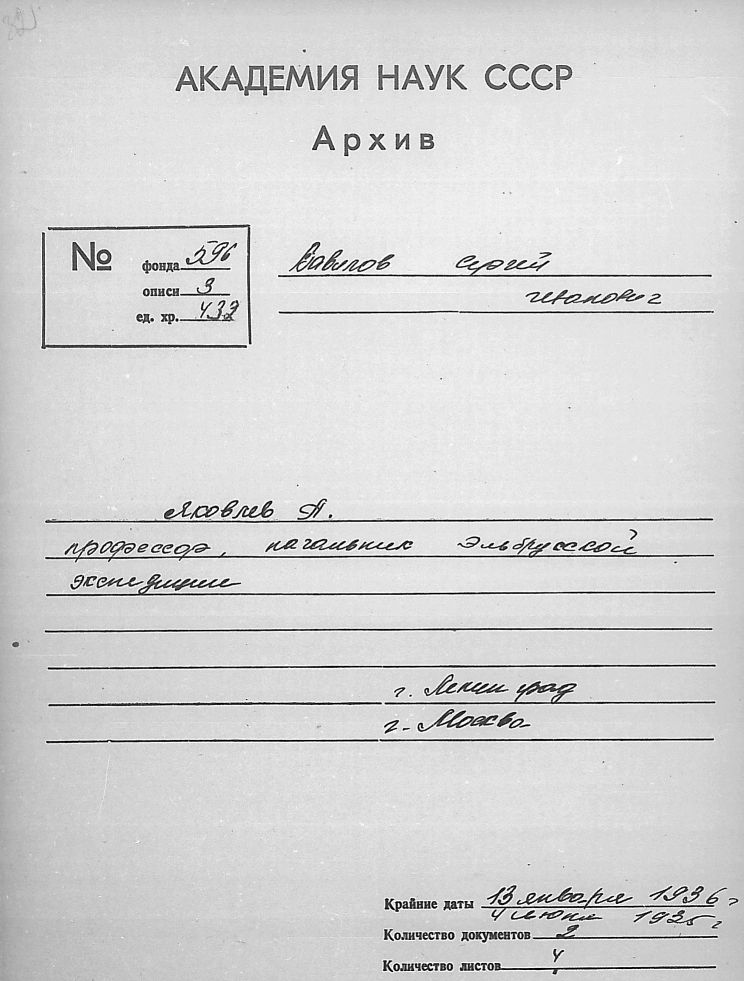 АКАДЕМИЯ НАУК СССР
Архив
№ фонда 596
описи 3
ед. хр. 432
Вавилов Сергей
Иванович
Яковлев А.
профессор, начальник Эльбрусской
экспедиции
г. Ленинград
г. Москва
Крайние даты 13 января 1936 г
4 июня 1935 г
Количество документов 2
Количество листов 4